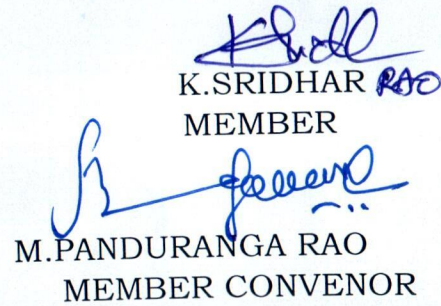 K.SRIDHAR RAO
MEMBER
M.PANDURANGA RAO
MEMBER CONVENOR